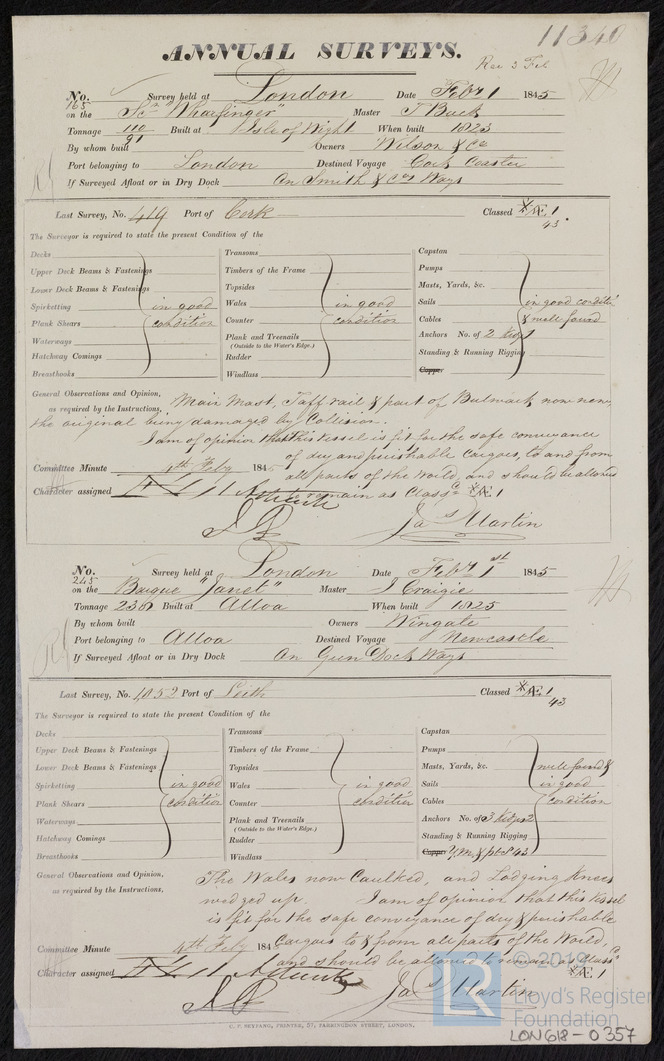 11340
ANNUAL SURVEYS.
Rec 3 Feb
No. 165 Survey held at London Date Feby 1 1845
on the Scr "Wharfinger" Master J Buck
Tonnage 110/91 Built at Isle of Wight When built 1823
By whom built Owners Wilson & Co
Port belonging to London Destined Voyage Cork Coaster
If Surveyed Afloat or in Dry Dock On Smith & Cos Ways
Last Survey, No. 419 Port of Cork Classed Æ 1 43.
The Surveyor is required to state the present Condition of the
Decks Transoms Capstan
Upper Deck Beams & Fastenings Timbers of the Frame Pumps
Lower Deck Beams & Fastenings Topsides Masts, Yards, &c.
Spirketting in good Wales in good Sails in good condition
Plank Shears condition Counter condition Cables & well found
Waterways Plank and Treenails Anchors No. of 2 Kedge 1
(Outside to the Water's Edge.)
Hatchway Comings Rudder Standing & Running Rigging
Breasthooks Windlass Copper
General Observations and Opinion, Main Mast, Taffrail & part of Bulwark now new,
as required by the Instructions,
the original being damaged by Collision.
I am of opinion that this Vessel is fit for the safe conveyance
of dry and perishable Cargoes, to and from
Committee Minute 4th Feby 1845 all parts of the World, and should be allowed
Character assigned to remain as Classd Æ 1
Jas Martin
No. 245 Survey held at London Date Feby 1st 1845
on the Barque "Janet" Master J Craigie
Tonnage 236 Built at Alloa When built 1825
By whom built Owners Wingate
Port belonging to Alloa Destined Voyage Newcastle
If Surveyed Afloat or in Dry Dock On Gun Dock Ways
Last Survey, No. 1052 Port of Leith Classed Æ 1 43
The Surveyor is required to state the present Condition of the
Decks Transoms Capstan
Upper Deck Beams & Fastenings Timbers of the Frame Pumps
Lower Deck Beams & Fastenings Topsides Masts, Yards, &c. well found &
Spirketting in good Wales in good Sails in good
Plank Shears condition Counter condition Cables condition
Waterways Plank and Treenails Anchors No. of 3 Kedges 2
(Outside to the Water's Edge.)
Hatchway Comings Rudder Standing & Running Rigging
Breasthooks Windlass Copper Y.M. & pt 43
General Observations and Opinion, The Wales now Caulked, and Lodging Knees
as required by the Instructions, wedged up. I am of opinion that this Vessel
is fit for the safe conveyance of dry & perishable
Committee Minute 4th Feby 184 Cargoes to & from all parts of the World,
and should be allowed to remain as Classd
Character assigned Æ 1
Jas Martin
C. F. SEYFANG, PRINTER, 57, FARRINGDON STREET, LONDON.
© 2019
LR
Lloyd's Register
Foundation
LON618-0357